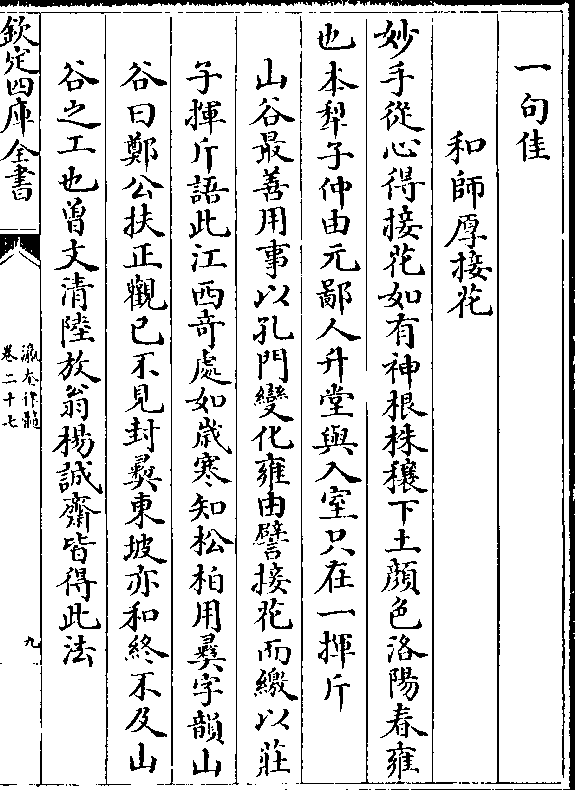 一句佳
和師厚接花
妙手從心得接花如有神根株穰下土顔色洛陽春雍
也本犂子仲由元鄙人升堂與入室只在一揮斤
山谷最善用事以孔門變化雍由譬接花而繳以莊
子揮斤語此江西竒處如歳寒知松柏用彛字韻山
谷曰鄭公扶正觀已不見封彛東坡亦和終不及山
谷之工也曽文清陸放翁楊誠齋皆得此法
欽定四庫全書
瀛奎律髓
卷二十七
九